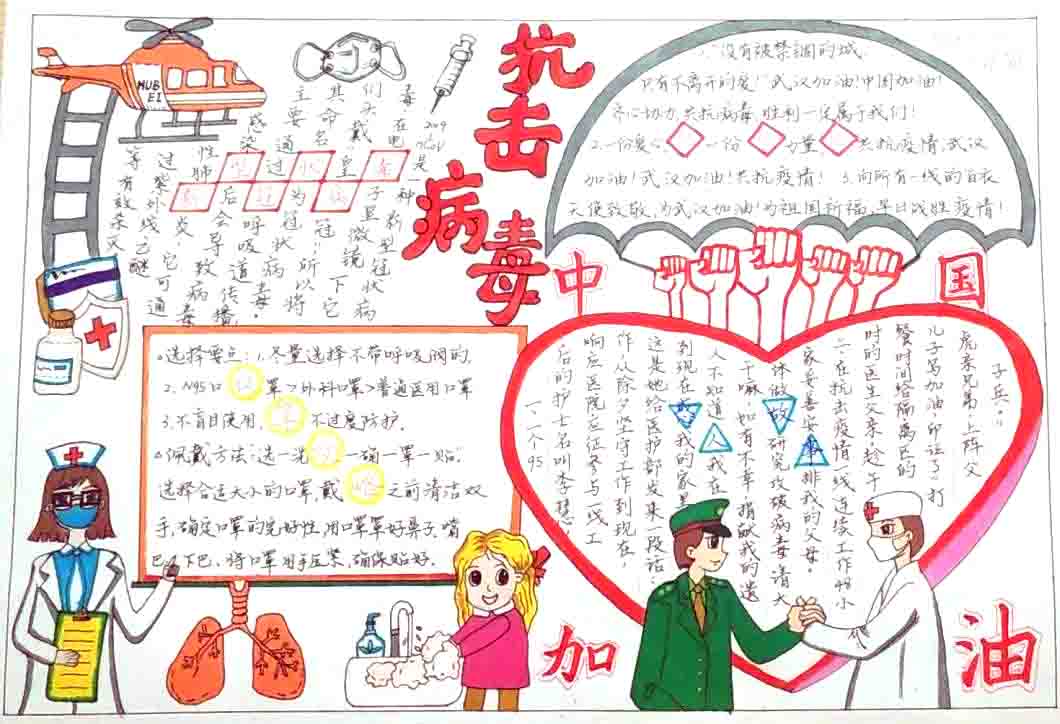 抗击病毒
HUBEI
2019
nCoV
是一种新型冠状病
毒在电子显微镜下它
们头戴皇冠，所以将
其命名为冠状病毒。
主要通过呼吸道传播，
感染后会导致病毒
性肺炎，它可通
过紫外线乙醚
等有效杀灭
1.没有被禁锢的城，
只有不离开的爱！武汉加油！中国加油！
齐心协力，共抗病毒，胜利一定属于我们！
2.一份爱心 一份力量 共抗疫情，武汉
加油！武汉加油！共抗疫情！ 3.向所有一线的白衣
天使致敬，为武汉加油！为祖国祈福，早日战胜疫情！
中国
选择要点：1.尽量选择不带呼吸阀的.
2.N95口罩>外科口罩>普通医用口罩
3.不盲目使用，不过度防护.
佩戴方法"选一洗一确一罩一贴".
选择合适大小的口罩，戴之前清洁双
手，确定口罩的完好性，用口罩罩好鼻子、嘴
巴、下巴、将口罩用手压紧，确保贴好.
一、一个95
后的护士名叫李慧
响应医院应征参与一线工
作，从除夕坚守工作到现在，
这是她给医护部发来一段话：
到现在我的家里
人不知道 我在
干嘛，如有不幸，捐献我的遗
体做研究攻破病毒，请大
家妥善安排我的父母。
二、在抗击疫情一线连续工作48小
时的医生父亲，趁午
餐时间给隔离区的
儿子写加油印证了"打
虎亲兄弟，上阵父
子兵。"
加油